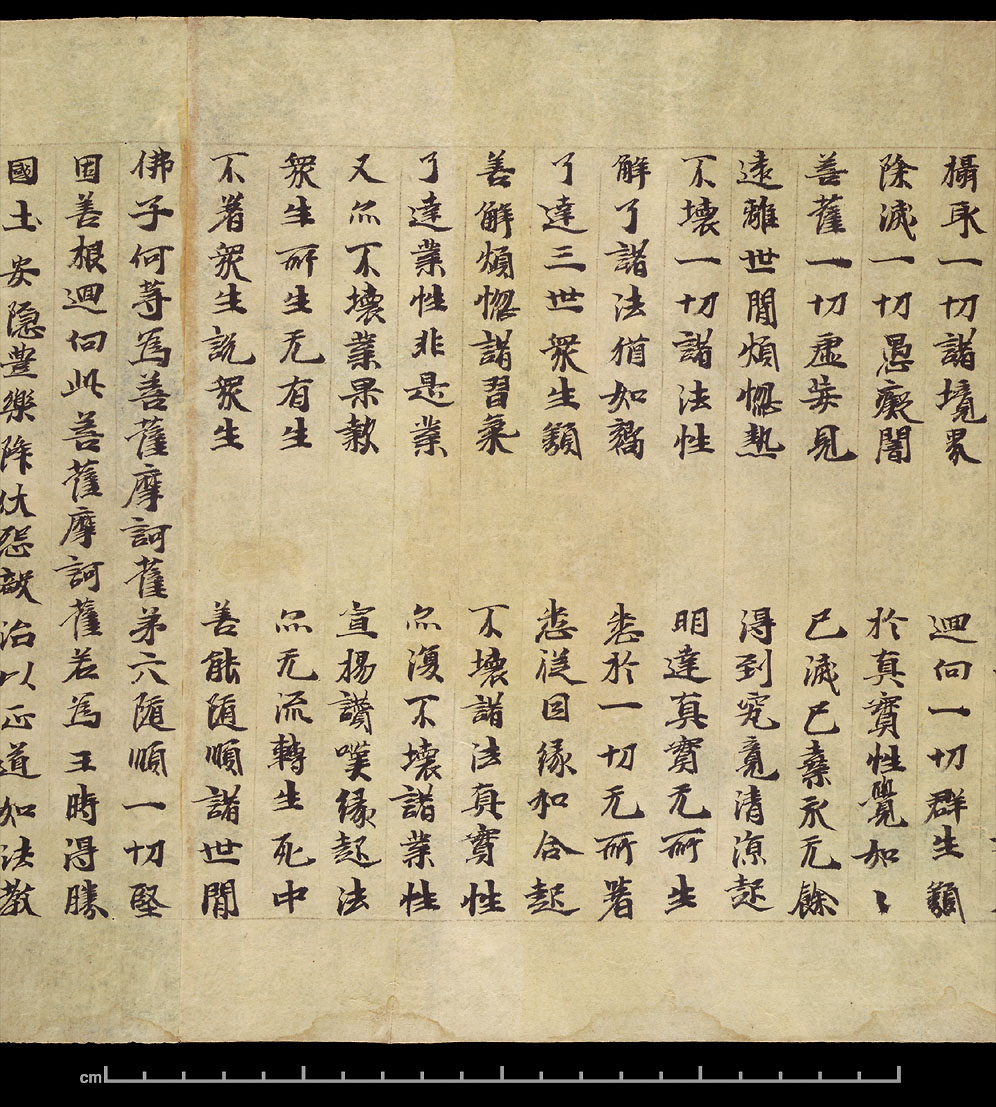 攝取一切諸境界 迴向一切群生類
除滅一切愚癡闇 於真實性覺如〻
善薩一切虛妄見 已滅已棄永无餘
遠離世間煩惚熱 得到究竟清涼起
不壞一切諸法性 明達真實无所生
解了諸法猶如響 悉於一切无所著
了達三世衆生類 悉從因緣和合起
善解煩惚諸習氣 不壞諸法真實性
了達業性非是業 亦復不壞諸業性
又亦不壞業果報 宣揚讚嘆緣起法
衆生所生无有生 亦无流轉生死中
不著衆生說衆生 善能隨順諸世間
佛子何等為善薩摩訶薩第六隨順一切堅
固善根迴向此善薩摩訶薩若為王時得勝
國土安隱豐樂降伏怨敵治以正道如法教